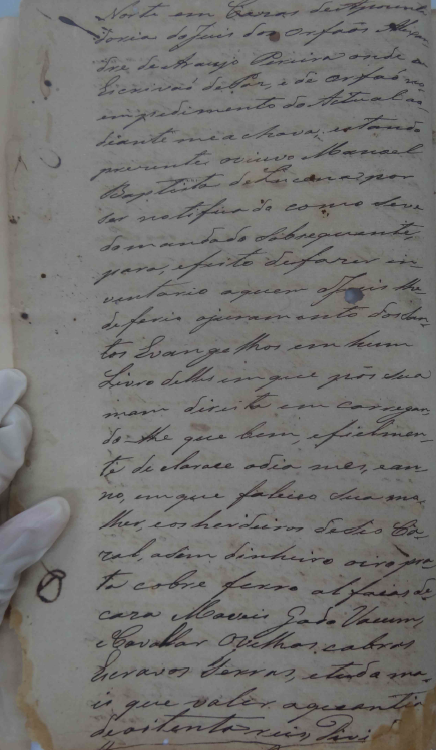 Norte em Cazas de Apozenta
doria do Juis dos orfaõs Alixan
dre de Araujo Pereira onde eu
Escrivaõ de Paz, e de orfaõs no
empedimento do Actual ao
diante me achava, estando
prezente o viuvo Manoel
Baptista de Lucena, por
ser notificado como se ve
do mandado Subsequente,
para, efeito de fazer in
ventario aquem o Juis lhe
deferio ojuramento dos San
tos Evangelhos em hum
Livro delles em que pôs sua
mam direita em carregan
do-lhe que bem, e fielmen
te declarace odia mes, e an
no, em que faleceo sua mo
lher, e os herdeiros de seo Ca
zal, a dem dinheiro oiro pra
ta cobre ferro alfaias de
caza Moveis Gado Vacum,
e Cavallar Ovelhas, cabras
Escravos Terras, e tudo ma
is que valer aquantia
de oitenta reis